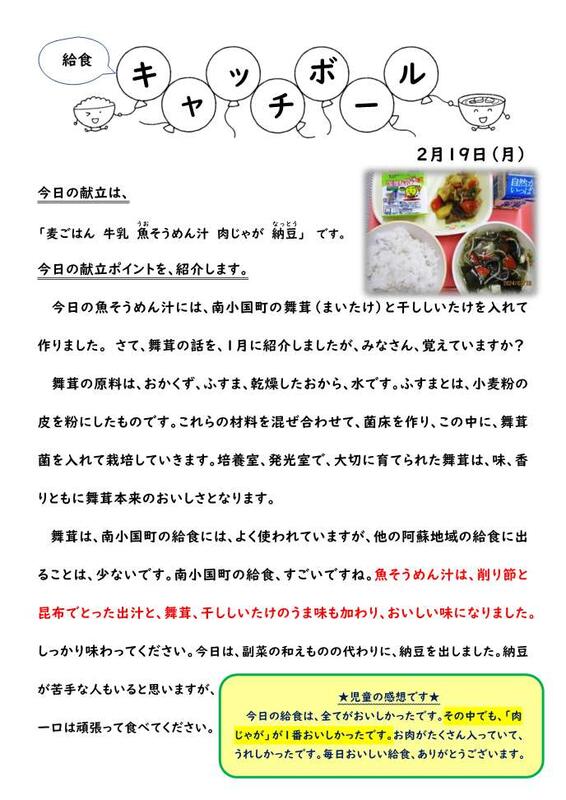 給食
キャッチボール
2月19日(月)
今日の献立は、
「麦ごはん 牛乳 魚そうめん汁 肉じゃが 納豆」 です。
今日の献立ポイントを、紹介します。
今日の魚そうめん汁には、南小国町の舞茸(まいたけ)と干ししいたけを入れて
作りました。 さて、舞茸の話を、1月に紹介しましたが、みなさん、覚えていますか?
舞茸の原料は、おかくず、ふすま、乾燥したおから、水です。ふすまとは、小麦粉の
皮を粉にしたものです。これらの材料を混ぜ合わせて、菌床を作り、この中に、舞茸
菌を入れて栽培していきます。培養室、発光室で、大切に育てられた舞茸は、味、香
りともに舞茸本来のおいしさとなります。
舞茸は、南小国町の給食には、よく使われていますが、他の阿蘇地域の給食に出
ることは、少ないです。南小国町の給食、すごいですね。魚そうめん汁は、削り節と
昆布でとった出汁と、舞茸、干ししいたけのうま味も加わり、おいしい味になりました。
しっかり味わってください。今日は、副菜の和えものの代わりに、納豆を出しました。納豆
が苦手な人もいると思いますが、
一口は頑張って食べてください。
★児童の感想です★
今日の給食は、全てがおいしかったです。その中でも、「肉
じゃが」が1番おいしかったです。お肉がたくさん入っていて、
うれしかったです。毎日おいしい給食、ありがとうございます。